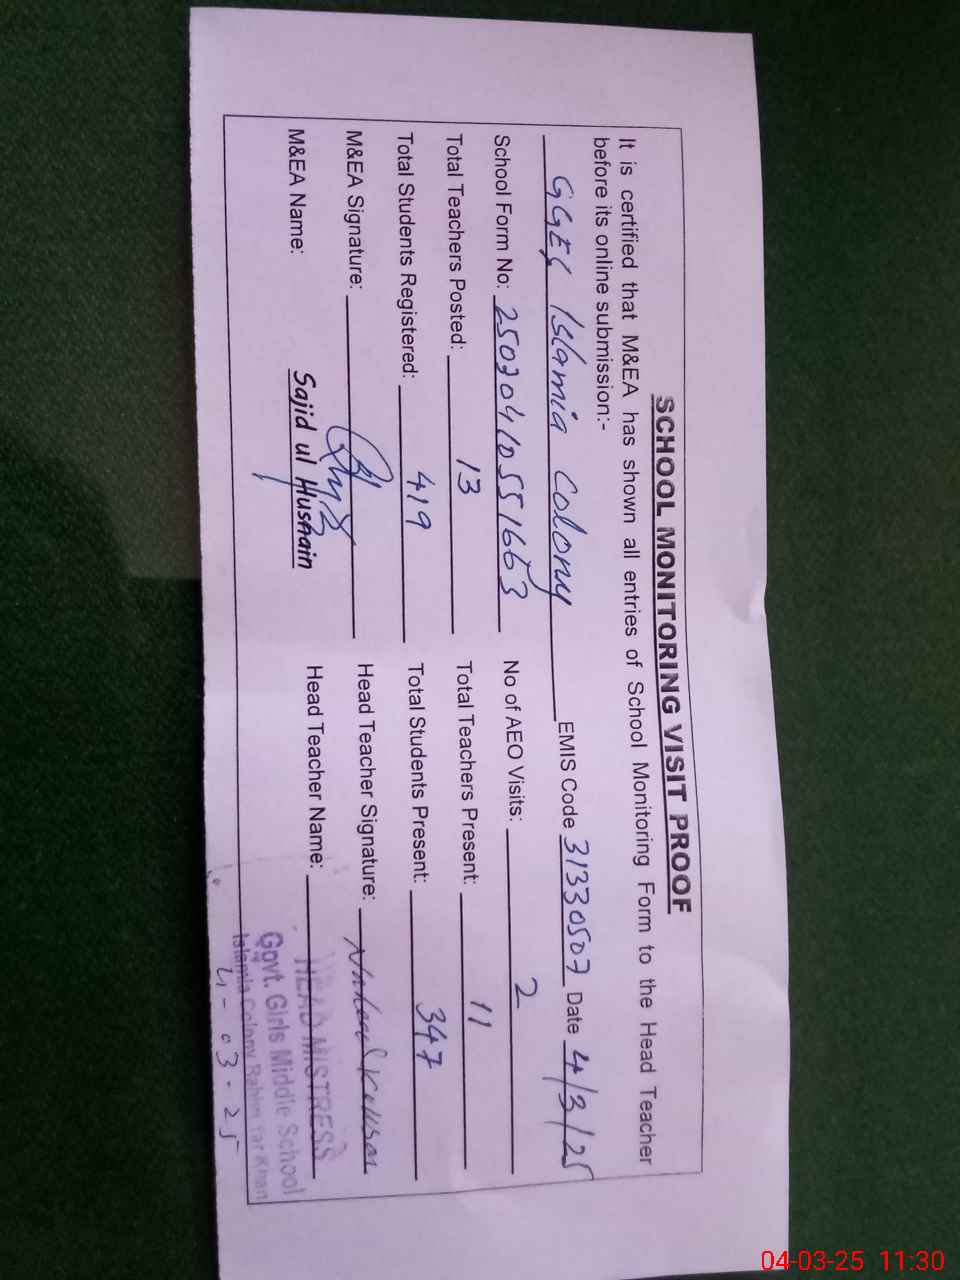 SCHOOL MONITORING VISIT PROOF
It is certified that M&EA has shown all entries of School Monitoring Form to the Head Teacher
before its online submission:-
GGES Islamia Colony EMIS Code 31330507 Date 4/3/25
School Form No: 25030410551663 No of AEO Visits: 2
Total Teachers Posted: 13 Total Teachers Present: 11
Total Students Registered: 419 Total Students Present: 347
M&EA Signature: Head Teacher Signature:
M&EA Name: Sajid ul Husnain Head Teacher Name:
HEAD MISTRESS
Govt. Girls Middle School
Islamia Colony Rahim Yar Khan
4-03-25
04-03-25 11:30